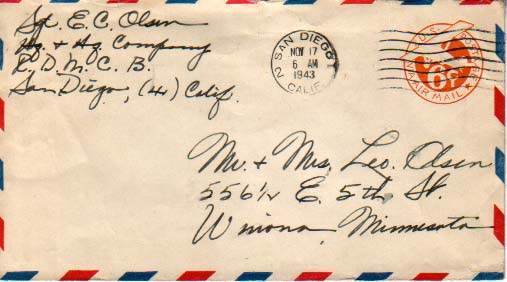 Sgt. E. C. Olsen
Hq. + Hq. Company
R. D. M. C. B.
San Diego, (41) Calif.
SAN DIEGO
NOV 17
6 AM
1943
2 CALIF.
6¢
VIA AIR MAIL
Mr. + Mrs. Leo. Olsen
556 1/2 E. 5th St.
Winona, Minnesota